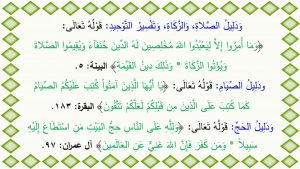 وَدَلِيلُ الصَّلاةِ، وَالزَّكَاةِ، وَتَفْسِيرُ التَّوْحِيدِ: قَوْلُهُ تَعَالَى:
﴿وَمَا أُمِرُوا إِلاَّ لِيَعْبُدُوا اللهَ مُخْلِصِينَ لَهُ الدِّينَ حُنَفَاءَ وَيُقِيمُوا الصَّلاةَ
وَيُؤْتُوا الزَّكَاةَ * وَذَلِكَ دِينُ القَيِّمَةِ﴾ البينة: ٥.
ودَلِيلُ الصِّيَامِ: قَوْلُهُ تَعَالَى: ﴿يَا أَيُّهَا الَّذِينَ آمَنُواْ كُتِبَ عَلَيْكُمُ الصِّيَامُ
كَمَا كُتِبَ عَلَى الَّذِينَ مِن قَبْلِكُمْ لَعَلَّكُمْ تَتَّقُونَ﴾ البقرة: ١٨٣.
ودَلِيلُ الحَجِّ: قَوْلُهُ تَعَالَى: ﴿وَلِلَّهِ عَلَى النَّاسِ حِجُّ البَيْتِ مَنِ اسْتَطَاعَ إِلَيْهِ
سَبِيلاً * وَمَن كَفَرَ فَإِنَّ اللهَ غَنِيٌّ عَنِ العَالَمِينَ﴾ آل عمران: ٩٧.